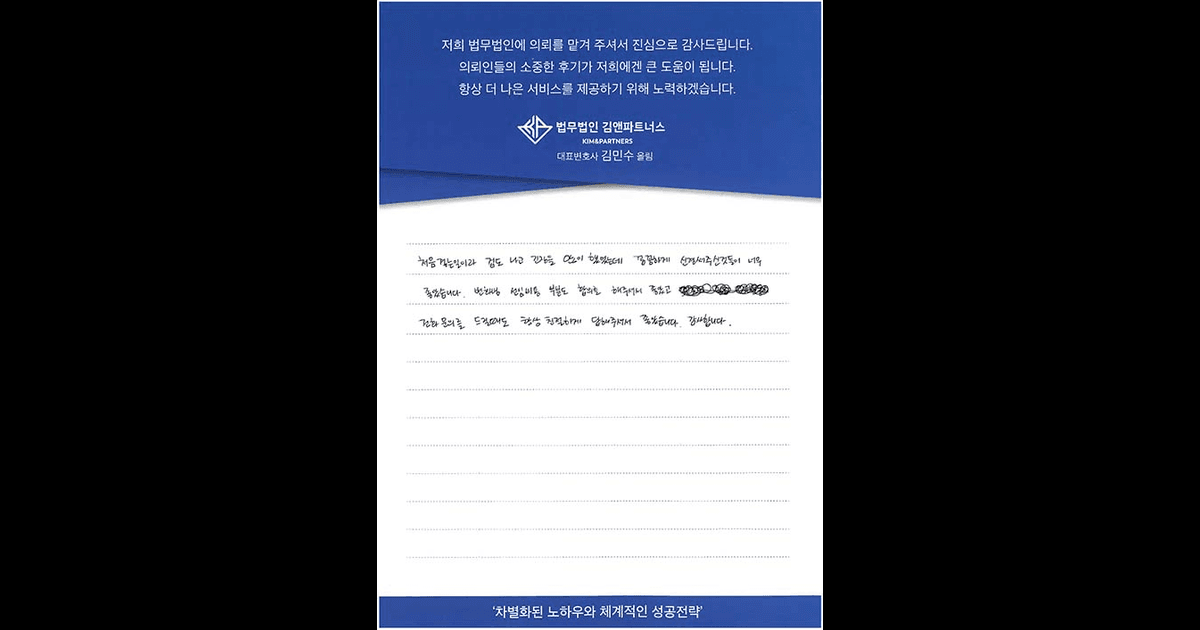 저희 법무법인에 의뢰를 맡겨 주셔서 진심으로 감사드립니다.
의뢰인들의 소중한 후기가 저희에겐 큰 도움이 됩니다.
항상 더 나은 서비스를 제공하기 위해 노력하겠습니다.
법무법인 김앤파트너스
KIM&PARTNERS
대표변호사 김민수 올림
처음 겪는일이라 겁도 나고 긴장을 많이 했었는데 꼼꼼하게 신경써주신것들이 너무
좋았습니다. 변호사 선임비용 부분도 합의로 해주셔서 좋았고
전화 문의를 드릴때도 항상 친절하게 답해주셔서 좋았습니다. 감사합니다.
'차별화된 노하우와 체계적인 성공전략'